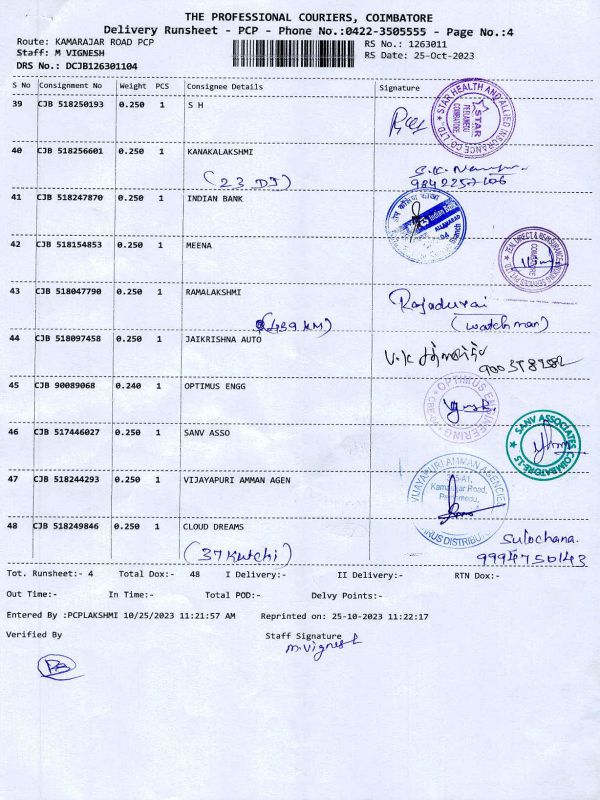 THE PROFESSIONAL COURIERS, COIMBATORE
Delivery Runsheet - PCP - Phone No.:0422-3505555 - Page No.:4
Route: KAMARAJAR ROAD PCP
RS No.: 1263011
Staff: M VIGNESH
RS Date: 25-Oct-2023
DRS No.: DCJB126301104
S No Consignment No Weight PCS Consignee Details Signature
39 CJB 518250193 0.250 1 S H
STAR HEALTH AND ALLIED INSURANCE CO LTD
STAR PEELAMEDU COIMBATORE
40 CJB 518256601 0.250 1 KANAKALAKSHMI
(23 DJ)
9842257106
41 CJB 518247870 0.250 1 INDIAN BANK
Indian Bank
ALLAHABAD
42 CJB 518154853 0.250 1 MEENA
43 CJB 518047790 0.250 1 RAMALAKSHMI
Rajadurai
(439 KM) (watchman)
44 CJB 518097458 0.250 1 JAIKRISHNA AUTO
45 CJB 90089068 0.240 1 OPTIMUS ENGG
OPTIMUS ENGINEERING
46 CJB 517446027 0.250 1 SANV ASSO
SANV ASSOCIATES COIMBATORE-15
47 CJB 518244293 0.250 1 VIJAYAPURI AMMAN AGEN
VIJAYAPURI AMMAN AGENCIES
Kamarajar Road,
48 CJB 518249846 0.250 1 CLOUD DREAMS
(37 Kutchi)
Sulochana.
9994750143
Tot. Runsheet:- 4 Total Dox:- 48 I Delivery:- II Delivery:- RTN Dox:-
Out Time:- In Time:- Total POD:- Delvy Points:-
Entered By :PCPLAKSHMI 10/25/2023 11:21:57 AM Reprinted on: 25-10-2023 11:22:17
Verified By Staff Signature
M.Vignesh